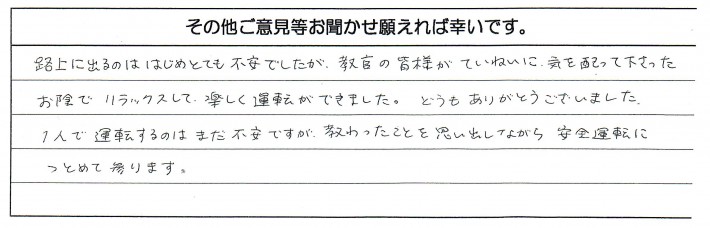 その他ご意見等お聞かせ願えれば幸いです。
路上に出るのは はじめとても 不安でしたが、教官の 皆様が ていねいに、気を配って下さった
お陰で リラックスして、楽しく 運転ができました。 どうも ありがとうございました。
1人で 運転するのは まだ 不安ですが、教わったことを 思い出しながら 安全運転に
つとめて 参ります。